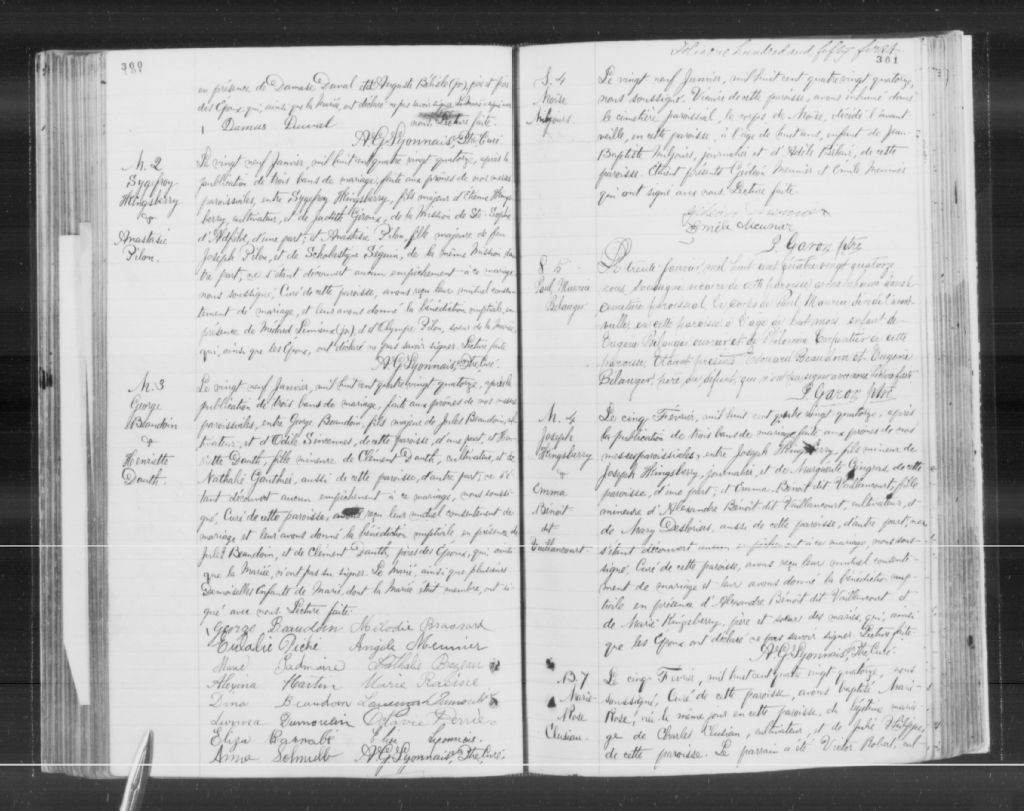 en présence de Damase Duval et Auguste Bélisle père et
des Epoux, qui, ainsi que la Mariée, ont déclaré ne pas savoir signer. Le Marié a signé avec
nous. Lecture faite.
Damas Duval
A. G. Lyonnais, Ptre, Curé.
M. 2
Sygefroy
Kingsberry
&
Anastasie
Pilon.
Le vingt neuf Janvier, mil huit cent quatre vingt quatorze, après la
publication de trois bans de mariage, faite aux prônes de nos messes
paroissiales, entre Sygefroy Kingsberry, fils majeur d'Etienne Kings
berry, cultivateur, et de Judith Giroux, de la Mission de Ste Sophie
d'une part; et Anastasie Pilon fille majeure de feu
Joseph Pilon, et de Scholastique Séguin, de la même Mission d'au
tre part, ne s'étant découvert aucun empêchement à ce mariage,
nous soussigné, Curé de cette paroisse, avons reçu leur mutuel consen
tement de mariage, et leur avons donné la bénédiction nuptiale, en
présence de Médard Lemieux et d'Olympe Pilon, soeur de la Mariée,
qui, ainsi que les Epoux, ont déclaré ne pas savoir signer. Lecture faite.
A. G. Lyonnais, Ptre, Curé.
M. 3
George
Beaudoin
&
Henriette
Danth.
Le vingt neuf Janvier, mil huit cent quatre vingt quatorze, après la
publication de trois bans de mariage, faite aux prônes de nos messes
paroissiales, entre George Beaudoin, fils majeur de Jules Beaudoin, cul
tivateur, et d'Odile de cette paroisse, d'une part, et Hen
riette Danth, fille mineure de Clément Danth, cultivateur, et de
Nathalie Gauthier, aussi de cette paroisse, d'autre part, ne s'é
tant découvert aucun empêchement à ce mariage, nous soussi
gné, Curé de cette paroisse, avons reçu leur mutuel consentement de
mariage et leur avons donné la bénédiction nuptiale, en présence de
Jules Beaudoin, et de Clément Danth, pères des Epoux, qui, ainsi
que la Mariée, n'ont pas su signer. Le Marié, ainsi que plusieurs
Demoiselles Enfants de Marie, dont la Mariée était membre, ont si
gné avec nous. Lecture faite.
George Baeudoin Mélodie Brassard
Eulalie Piché Angèle Meunier
Marie
Alexina Martin Marie Racine
Dina Beaudoin Dumoulin
Dumoulin Octavie Perrier
Eliza Barnabé Lyonnais.
Anna Schmidt A. G. Lyonnais, Ptre, Curé.
Folio one hundred and fifty first
301
S. 4
Moïse
Le vingt neuf Janvier, mil huit cent quatre vingt quatorze,
nous soussigné Vicaire de cette paroisse, avons inhumé dans
le cimetière paroissial, le corps de Moïse, décédé l'avant
veille, en cette paroisse, à l'âge de huit ans, enfant de Jean-
Baptiste journalier et d'Adèle Bélair, de cette
paroisse. Etaient présents Gédéon Meunier et Emile Meunier
qui ont signé avec nous. Lecture faite.
Gédéon Meunier
Emèle Meunier
P. Garon ptre
S. 5
Paul Maurice
Bélanger
Le trente Janvier, mil huit cent quatre vingt quatorze
nous soussigné vicaire de cette paroisse avons inhumé dans le
cimetière paroissial le corps de Paul Maurice décédé l'avant-
veille, en cette paroisse à l'âge de huit mois enfant de
Eugène Bélanger ouvrier et de Philomène de cette
paroisse. Etaient présents Edouard Beaudoin et Eugène
Bélanger, père du défunt, qui n'ont pu signer avec nous. Lecture faite
P. Garon ptre
M. 4
Joseph
Kingsberry
&
Emma
Benoit
dit
Vaillancourt
Le cinq Février, mil huit cent quatre vingt quatorze, après
la publication de trois bans de mariage faite aux prônes de nos
messes paroissiales, entre Joseph Kingsberry, fils mineur de
Joseph Kingsberry, journalier, et de Marguerite Gingras, de cette
paroisse, d'une part; et Emma Benoit dit Vaillancourt, fille
mineure d'Alexandre Benoit dit Vaillancourt, cultivateur, et
de Mary Desloriers, aussi de cette paroisse, d'autre part, ne
s'étant découvert aucun empêchement à ce mariage, nous sous-
signé, Curé de cette paroisse, avons reçu leur mutuel consente-
ment de mariage et leur avons donné la bénédiction nup-
tiale en présence d'Alexandre Benoit dit Vaillancourt et
de Marie Kingsberry, père et soeur des mariés, qui, ainsi
que les Epoux, ont déclaré ne pas savoir signer. Lecture faite.
A. G. Lyonnais, Ptre, Curé.
B. 7
Marie-
Rose
Clusiau.
Le cinq Février, mil huit cent quatre vingt quatorze, nous
soussigné, Curé de cette paroisse, avons baptisé Marie
Rose, née le même jour en cette paroisse, du légitime maria-
ge de Charles Clusiau, cultivateur, et de Julie Philippe,
de cette paroisse. Le parrain a été Victor Robert, ont